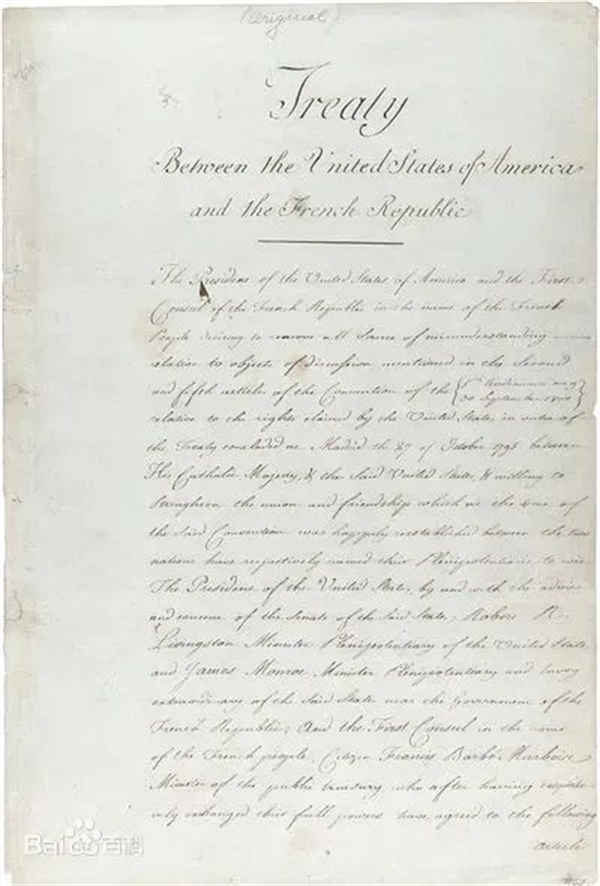 (Original)
Treaty
Between the United States of America
and the French Republic
The President of the United States of America and the First
Consul of the French Republic in the name of the French
People desiring to remove all Source of misunderstanding
relative to objects of discussion mentioned in the Second
and fifth articles of the Convention of the { 8th Vendémiaire an 9
30 September 1800 }
relative to the rights claimed by the United States in virtue of
the Treaty concluded at Madrid the 27 of October 1795 between
His Catholic Majesty, & the Said United States, & willing to
Strengthen the union and friendship which at the time of
the Said Convention was happily reestablished between the two
nations have respectively named their Plenipotentiaries to wit
The President of the United States, by and with the advice
and consent of the Senate of the Said States; Robert R.
Livingston Minister Plenipotentiary of the United States
and James Monroe Minister Plenipotentiary and Envoy
extraordinary of the Said States near the Government of the
French Republic; And the First Consul in the name
of the French people, Citizen Francis Barbé Marbois
Minister of the public treasury who after having respecti-
vely exchanged their full powers have agreed to the following
Article
Baidu百科